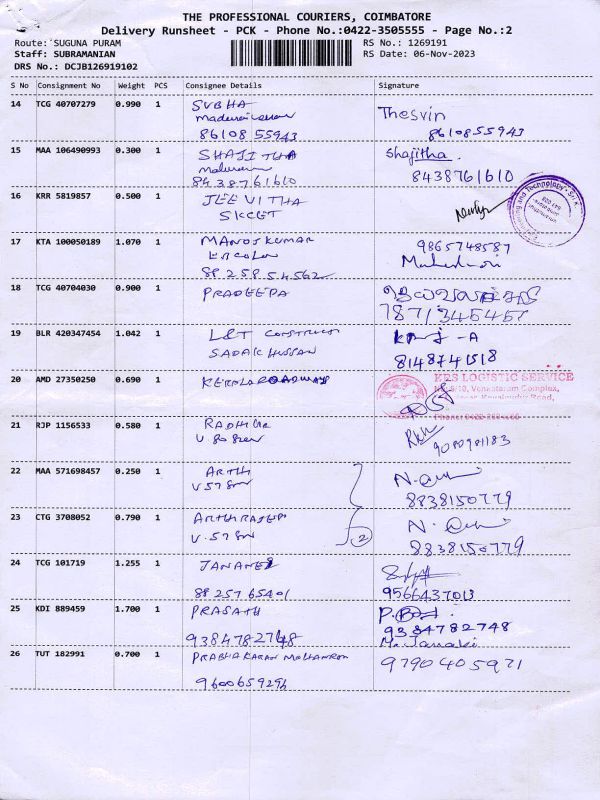 THE PROFESSIONAL COURIERS, COIMBATORE
Delivery Runsheet - PCK - Phone No.:0422-3505555 - Page No.:2
Route: SUGUNA PURAM RS No.: 1269191
Staff: SUBRAMANIAN RS Date: 06-Nov-2023
DRS No.: DCJB126919102
S No Consignment No Weight PCS Consignee Details Signature
14 TCG 40707279 0.990 1 SUBHA Thesvin
86108 55943 8610855943
15 MAA 106490993 0.300 1 SHAJITHA Shajitha.
84 38761610 8438761610
16 KRR 5819857 0.500 1 JEEVITHA
SKCET
17 KTA 100050189 1.070 1 MANOJ KUMAR 9865748587
88 258 54562
18 TCG 40704030 0.900 1 PRADEEPA
7871345457
19 BLR 420347454 1.042 1 L&T CONSTRUCT
SADAK HUSSAN 8148741518
20 AMD 27350250 0.690 1 KERALA ROADWAYS KRS LOGISTIC SERVICE
21 RJP 1156533 0.580 1 RADHIKA
9080981183
22 MAA 571698457 0.250 1 ARTHI
8838150779
23 CTG 3708052 0.790 1
2
8838150779
24 TCG 101719 1.255 1 JANANE
88 257 65401 9566437013
25 KDI 889459 1.700 1 PRASATH
9384782748 9384782748
26 TUT 182991 0.700 1 PRABHAKARAN 9790405971
9600659296